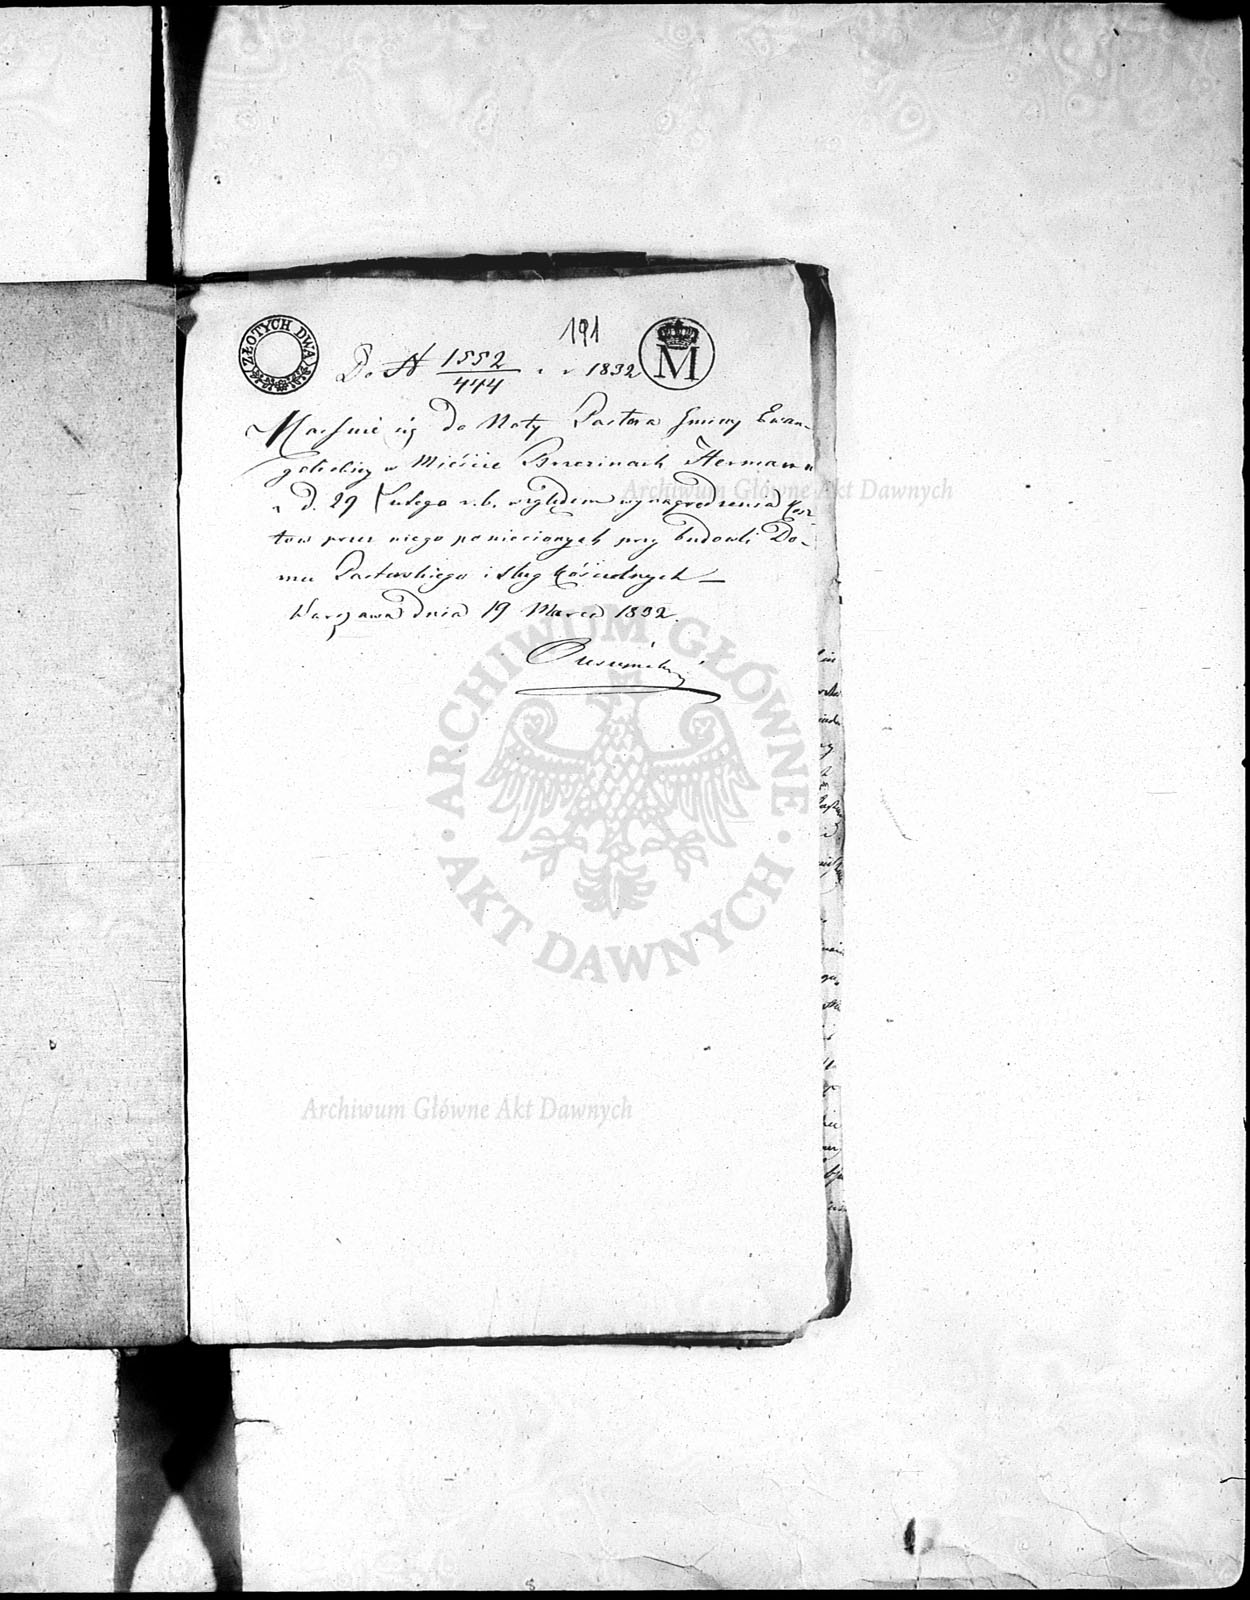 191
ZŁOTYCH DWA
M
Do N 1552/444 r 1832
do Noty Pastora Gminy Ewan-
gelickiey w Mieście Brzezinach Hermana
z d. 29 Lutego r.b. względem wynagrodzenia Kosz-
tow przez niego poniesionych przy budowli Do-
mu Pastorskiego i sług kościelnych
Warszawa dnia 19 Marca 1832.
Archiwum Główne Akt Dawnych
ARCHIWUM GŁÓWNE
AKT DAWNYCH
Archiwum Główne Akt Dawnych